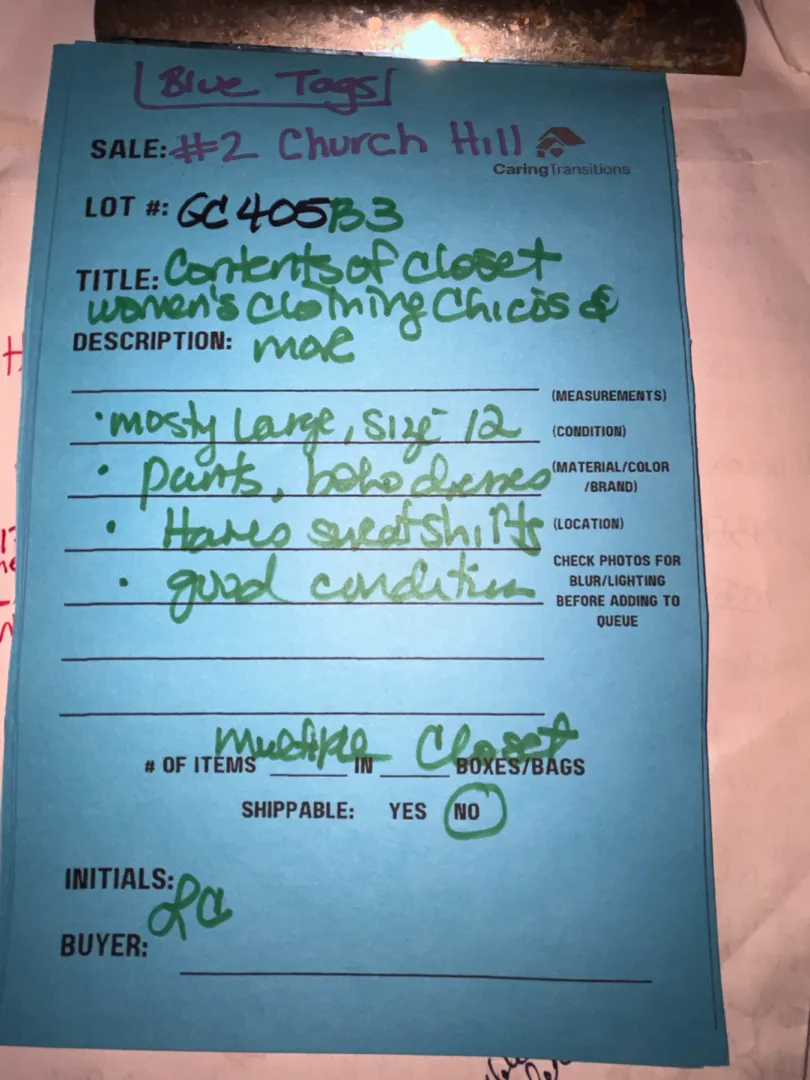 Blue Tags
SALE: #2 Church Hill
CaringTransitions
LOT #: GC405B3
TITLE: Contents of closet
women's clothing Chicos &
DESCRIPTION: more
(MEASUREMENTS)
• mosty large, size 12
(CONDITION)
• pants, boho dresses
(MATERIAL/COLOR
/BRAND)
• Hanes sweatshirts
(LOCATION)
• good condition
CHECK PHOTOS FOR
BLUR/LIGHTING
BEFORE ADDING TO
QUEUE
multiple Closet
# OF ITEMS ______ IN ______ BOXES/BAGS
SHIPPABLE: YES NO
INITIALS: LC
BUYER: